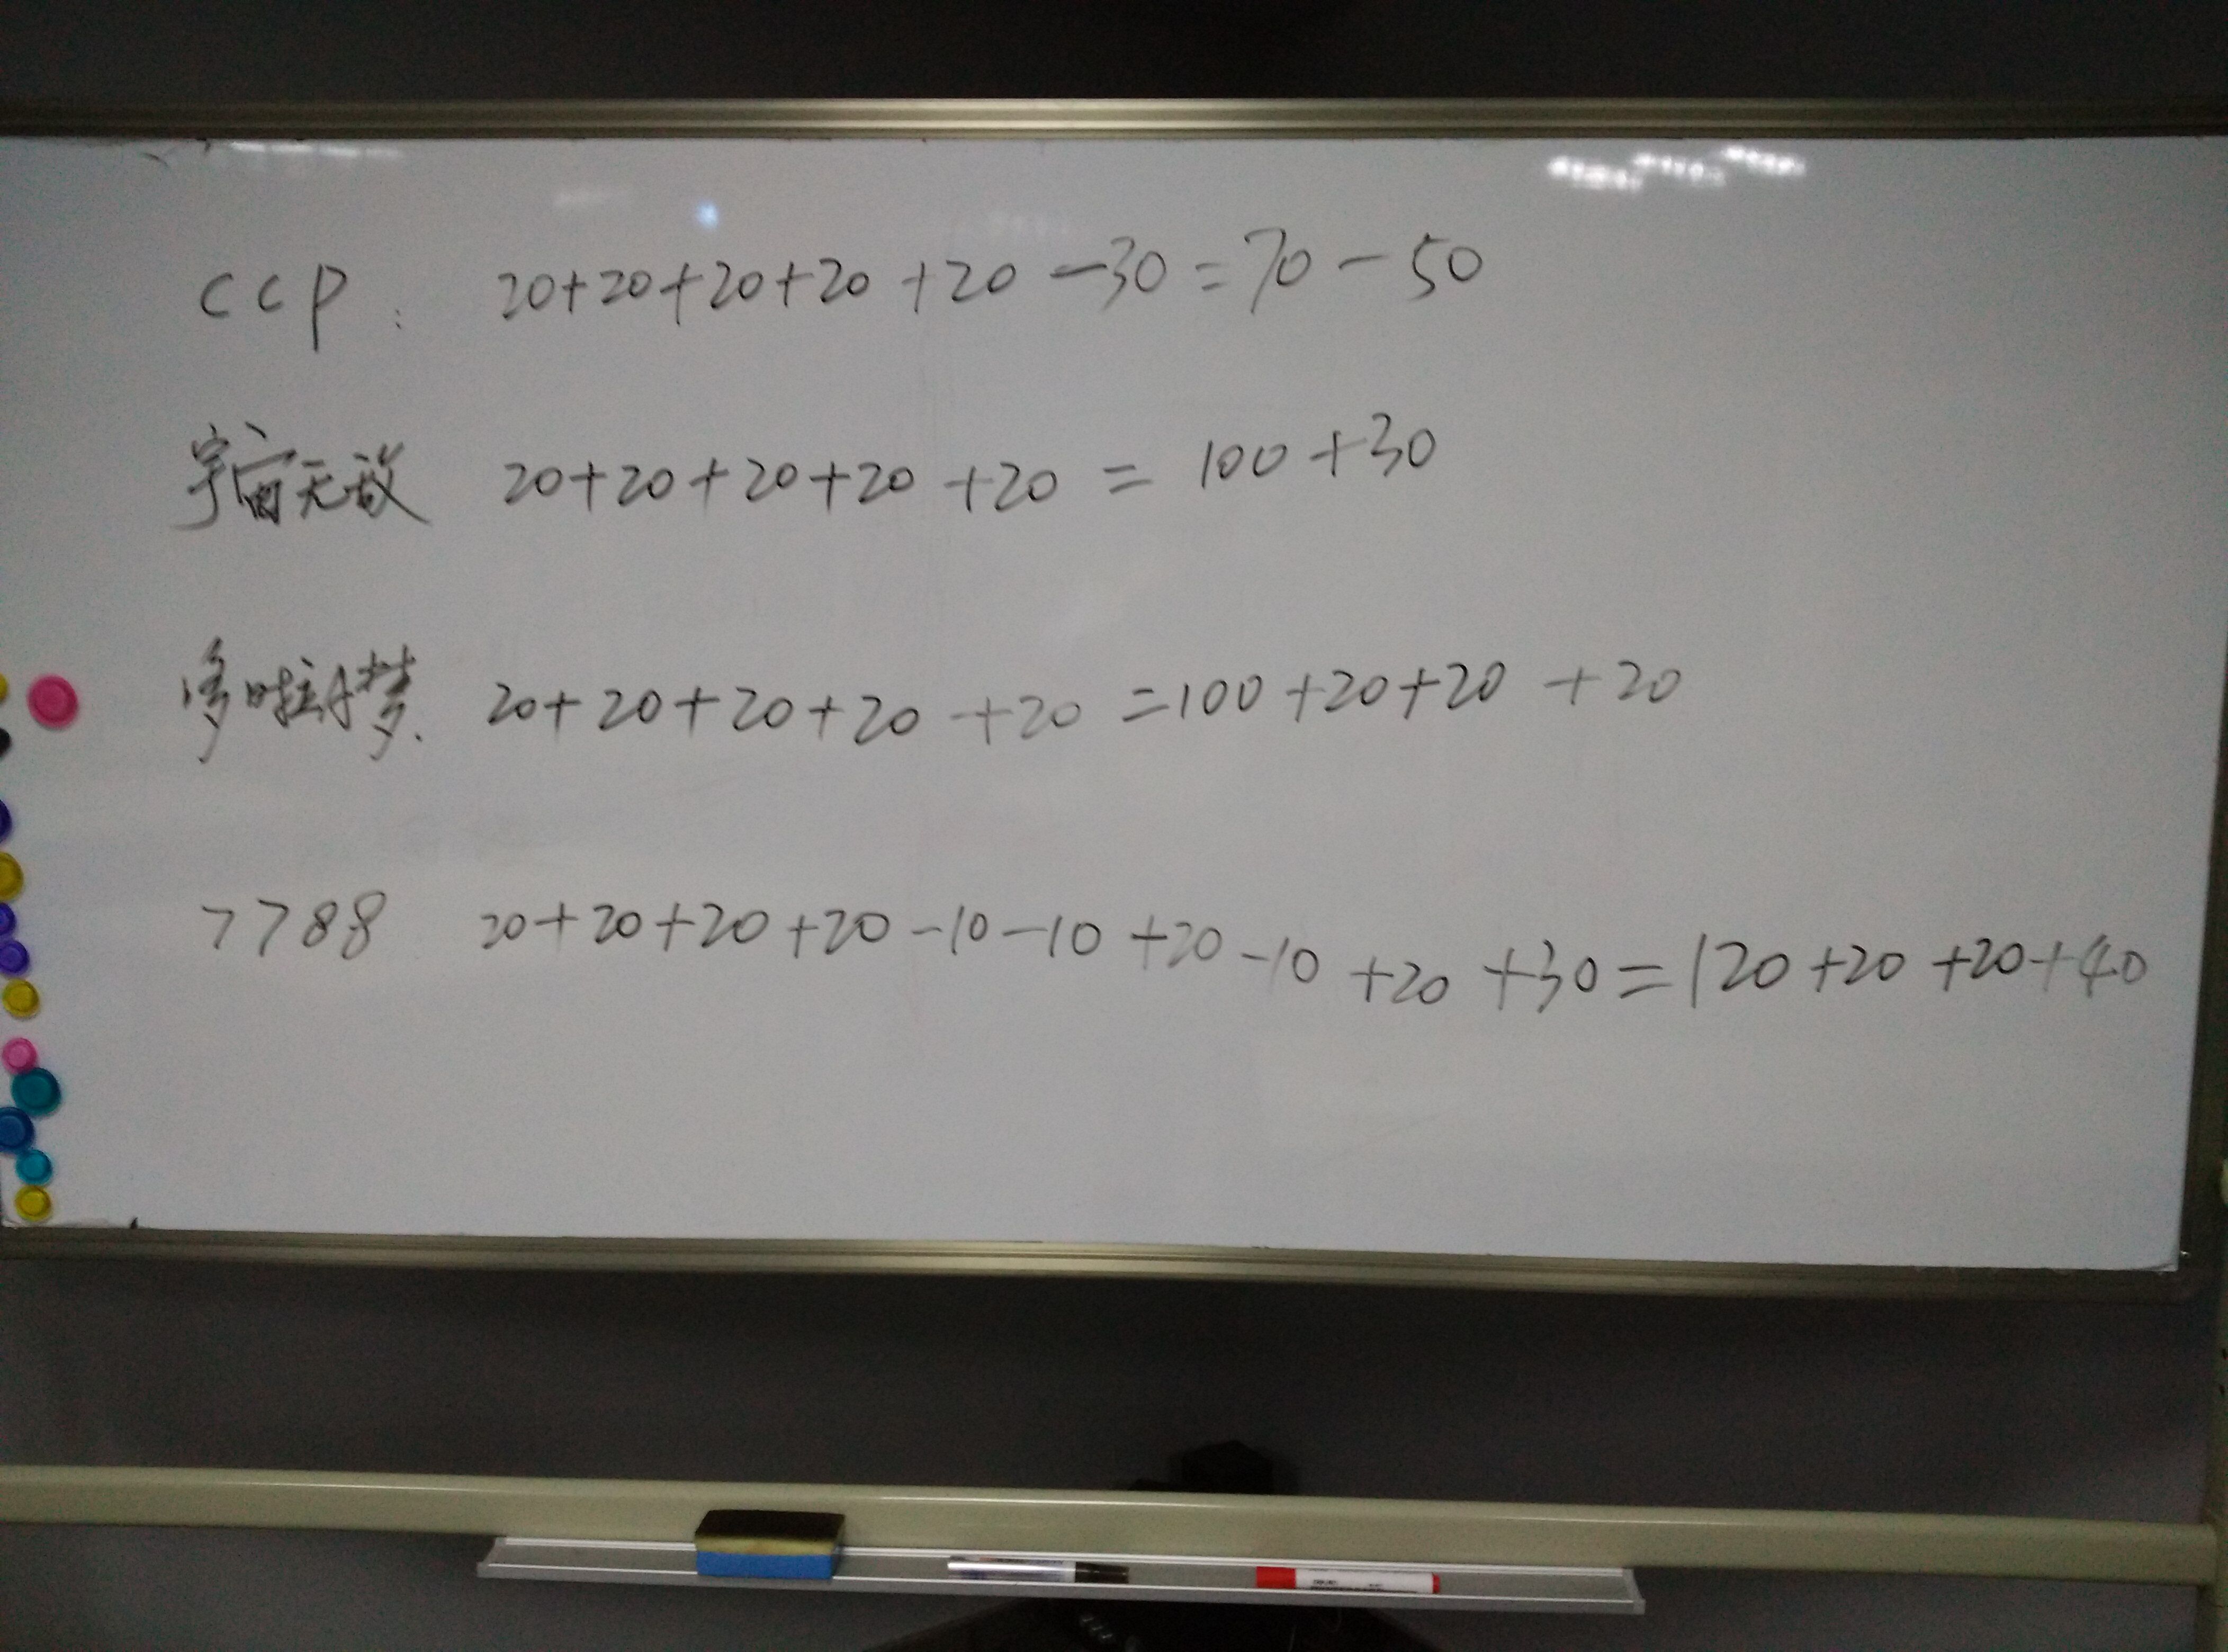 ccp: 20+20+20+20+20-30=70-50
宇宙无敌 20+20+20+20+20=100+30
哆啦A梦. 20+20+20+20+20=100+20+20+20
7788 20+20+20+20-10-10+20-10+20+30=120+20+20+40